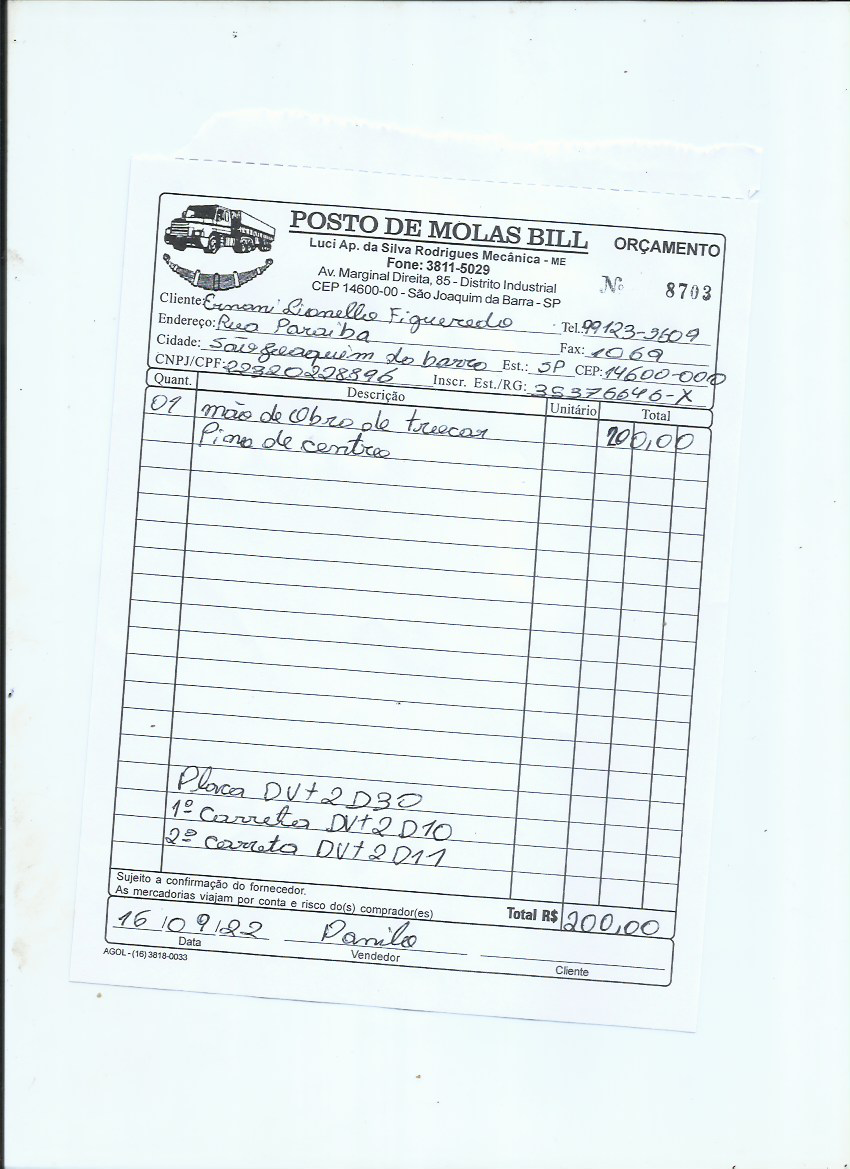 POSTO DE MOLAS BILL
ORÇAMENTO
Luci Ap. da Silva Rodrigues Mecânica - ME
Fone: 3811-5029
Av. Marginal Direita, 85 - Distrito Industrial
CEP 14600-00 - São Joaquim da Barra - SP
Nº 8703
Cliente: Ernani Lionello Figueredo Tel. 99123-3609
Endereço: Rua Paraiba Fax: 1069
Cidade: São Joaquim da barra Est.: SP CEP: 14600-000
CNPJ/CPF: 22320228896 Inscr. Est./RG: 38376646-X
Quant. Descrição Unitário Total
01 mão de Obra de trocar 200,00
Pino de centro
Placa DVt2D30
1º Carreta DVt2D10
2º Carreta DVt2D11
Sujeito a confirmação do fornecedor.
As mercadorias viajam por conta e risco do(s) comprador(es)
Total R$ 200,00
16/09/22 Danilo
Data Vendedor Cliente
AGOL - (16) 3818-0033